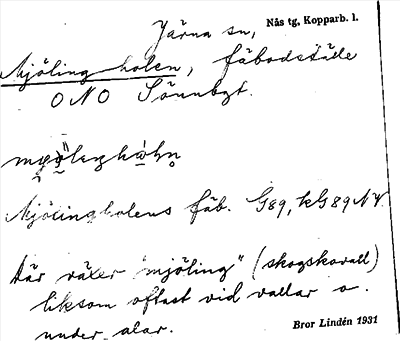 Järna sn, Nås tg, Kopparb. l.
Mjölingholen, fäbodställe
ONO Sönnbgt.
Mjölingholens fäb. G89, kG89NV.
Där växer "mjöling" (skogskovall)
liksom oftast vid vallar o.
under alar.
Bror Lindén 1931